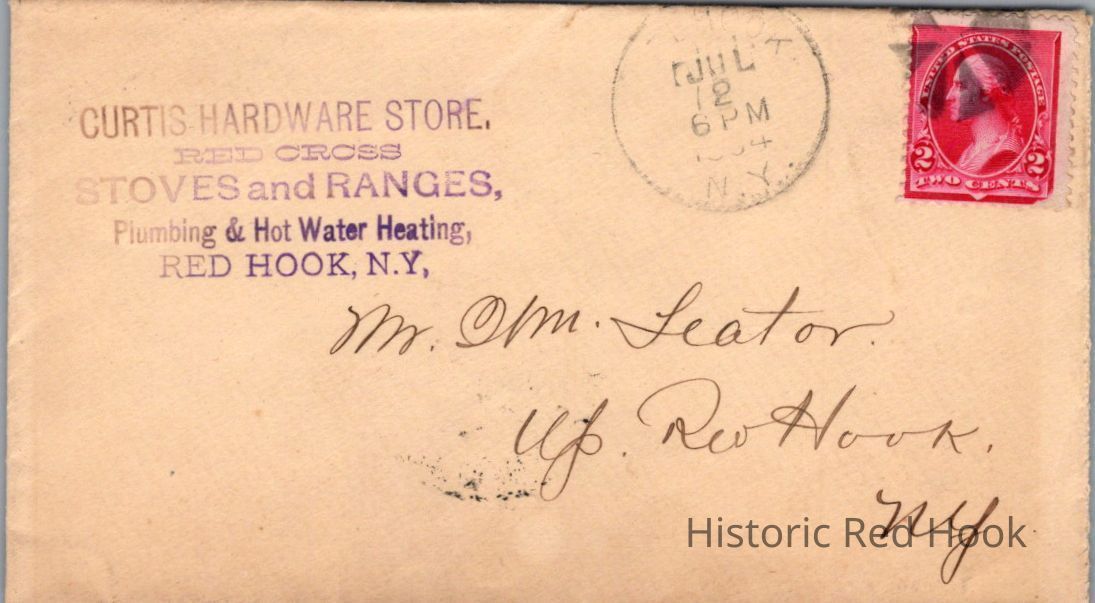 CURTIS HARDWARE STORE.
RED CROSS
STOVES and RANGES,
Plumbing & Hot Water Heating,
RED HOOK, N.Y,
JUL
12
6 PM
N.Y.
UNITED STATES POSTAGE
2 2
TWO CENTS
Mr. Wm. Seator.
Up. Red Hook.
NY
Historic Red Hook